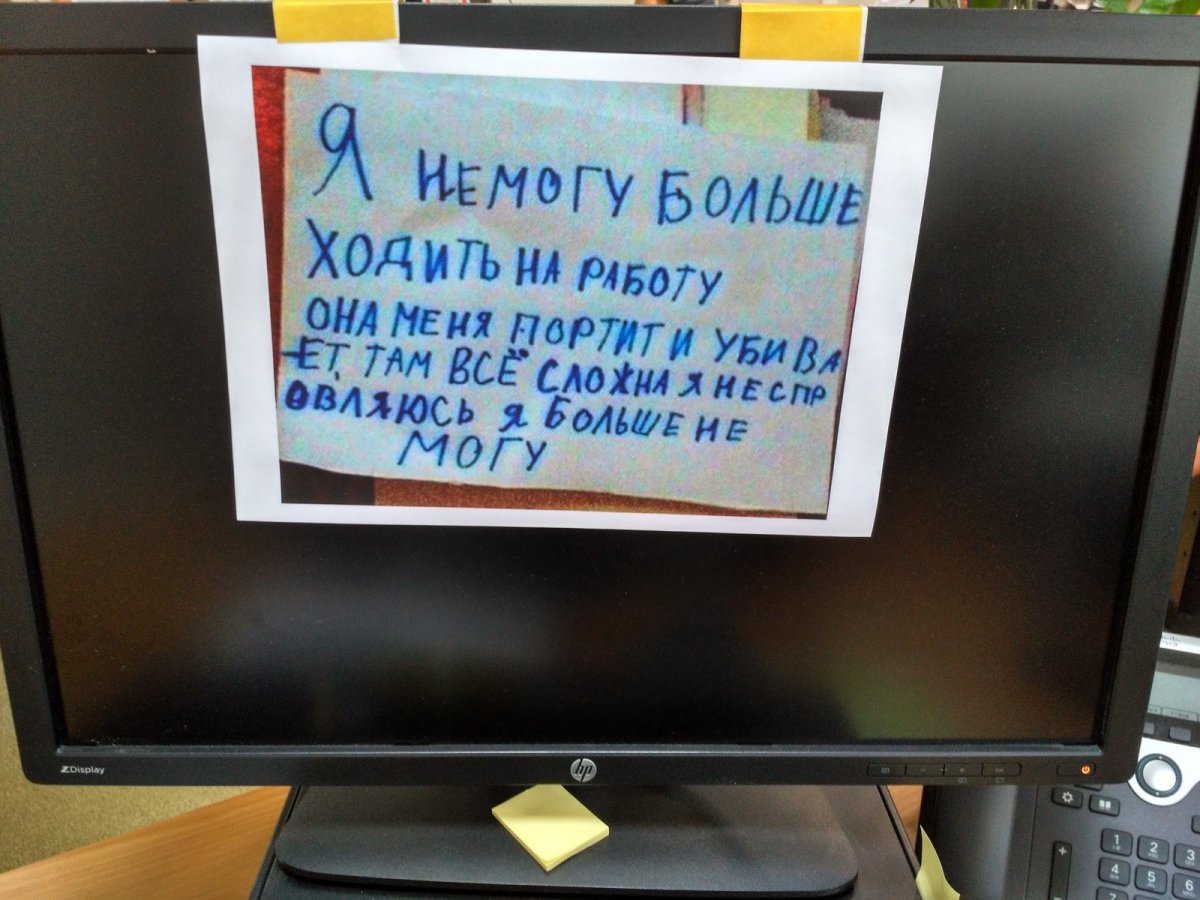 Я НЕ МОГУ БОЛЬШЕ
ХОДИТЬ НА РАБОТУ
ОНА МЕНЯ ПОРТИТ И УБИВА
-ЕТ, ТАМ ВСЁ СЛОЖНА Я НЕ СПР
ОВЛЯЮСЬ Я БОЛЬШЕ НЕ
МОГУ
ZDisplay
hp
1
2
3
4
5
6